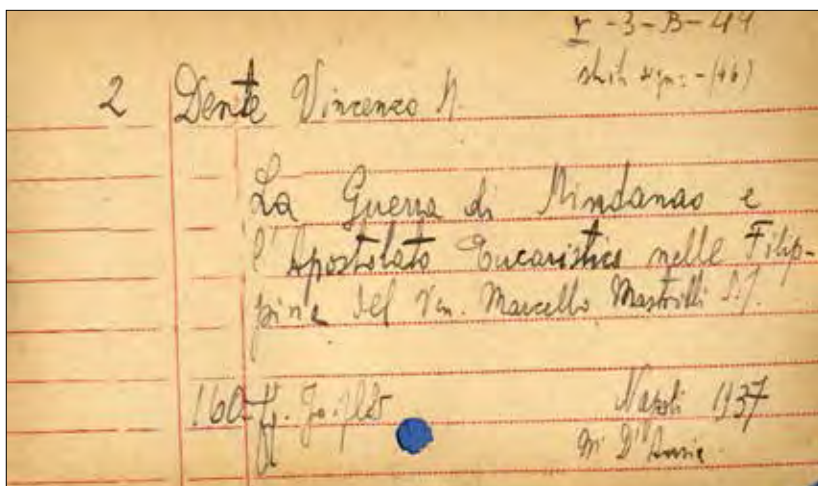 Y-3-B-44
2 Dente Vincenzo N.
La Guerra di Mindanao e
l'Apostolato Eucaristico nelle Filip-
pine del Ven. Marcello Mastrilli S.J.
160
Napoli 1937
M. D'Auria.